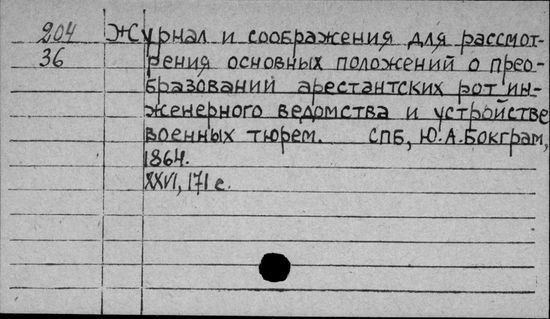 204 Журнал и соображения для рассмот-
36 рения основных положений о прео-
бразований арестантских рот ин-
женерного ведомства и устройстве
военных тюрем. СПБ, Ю.А.Бокграм,
1864.
XXVI, 171 с.